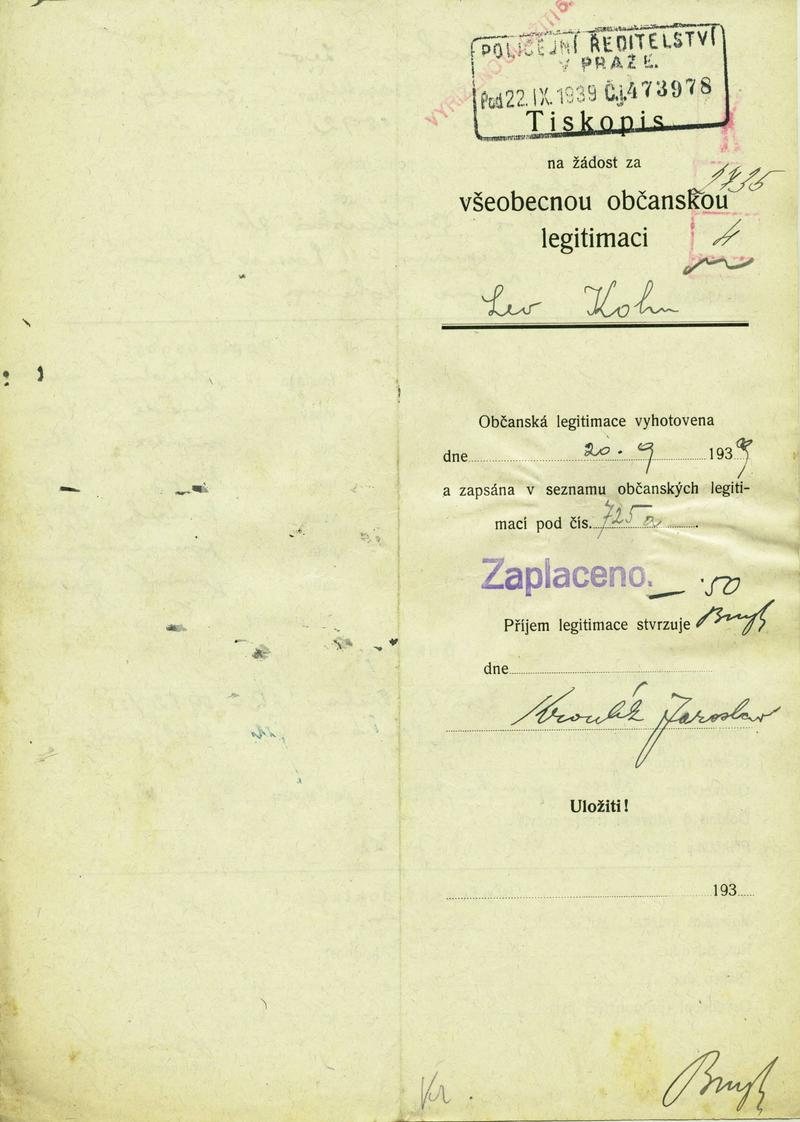 POLICEJNÍ ŘEDITELSTVÍ
V PRAZE.
Pod 22.IX.1939 Č.j. 473978
Tiskopis
na žádost za
1735
všeobecnou občanskou
legitimaci
4
Lev Kohn
Občanská legitimace vyhotovena
dne 20. 9 1939
a zapsána v seznamu občanských legiti-
mací pod čís. 725a
Zaplaceno. — 50
Příjem legitimace stvrzuje
dne
Jaroslav
Uložiti!
193